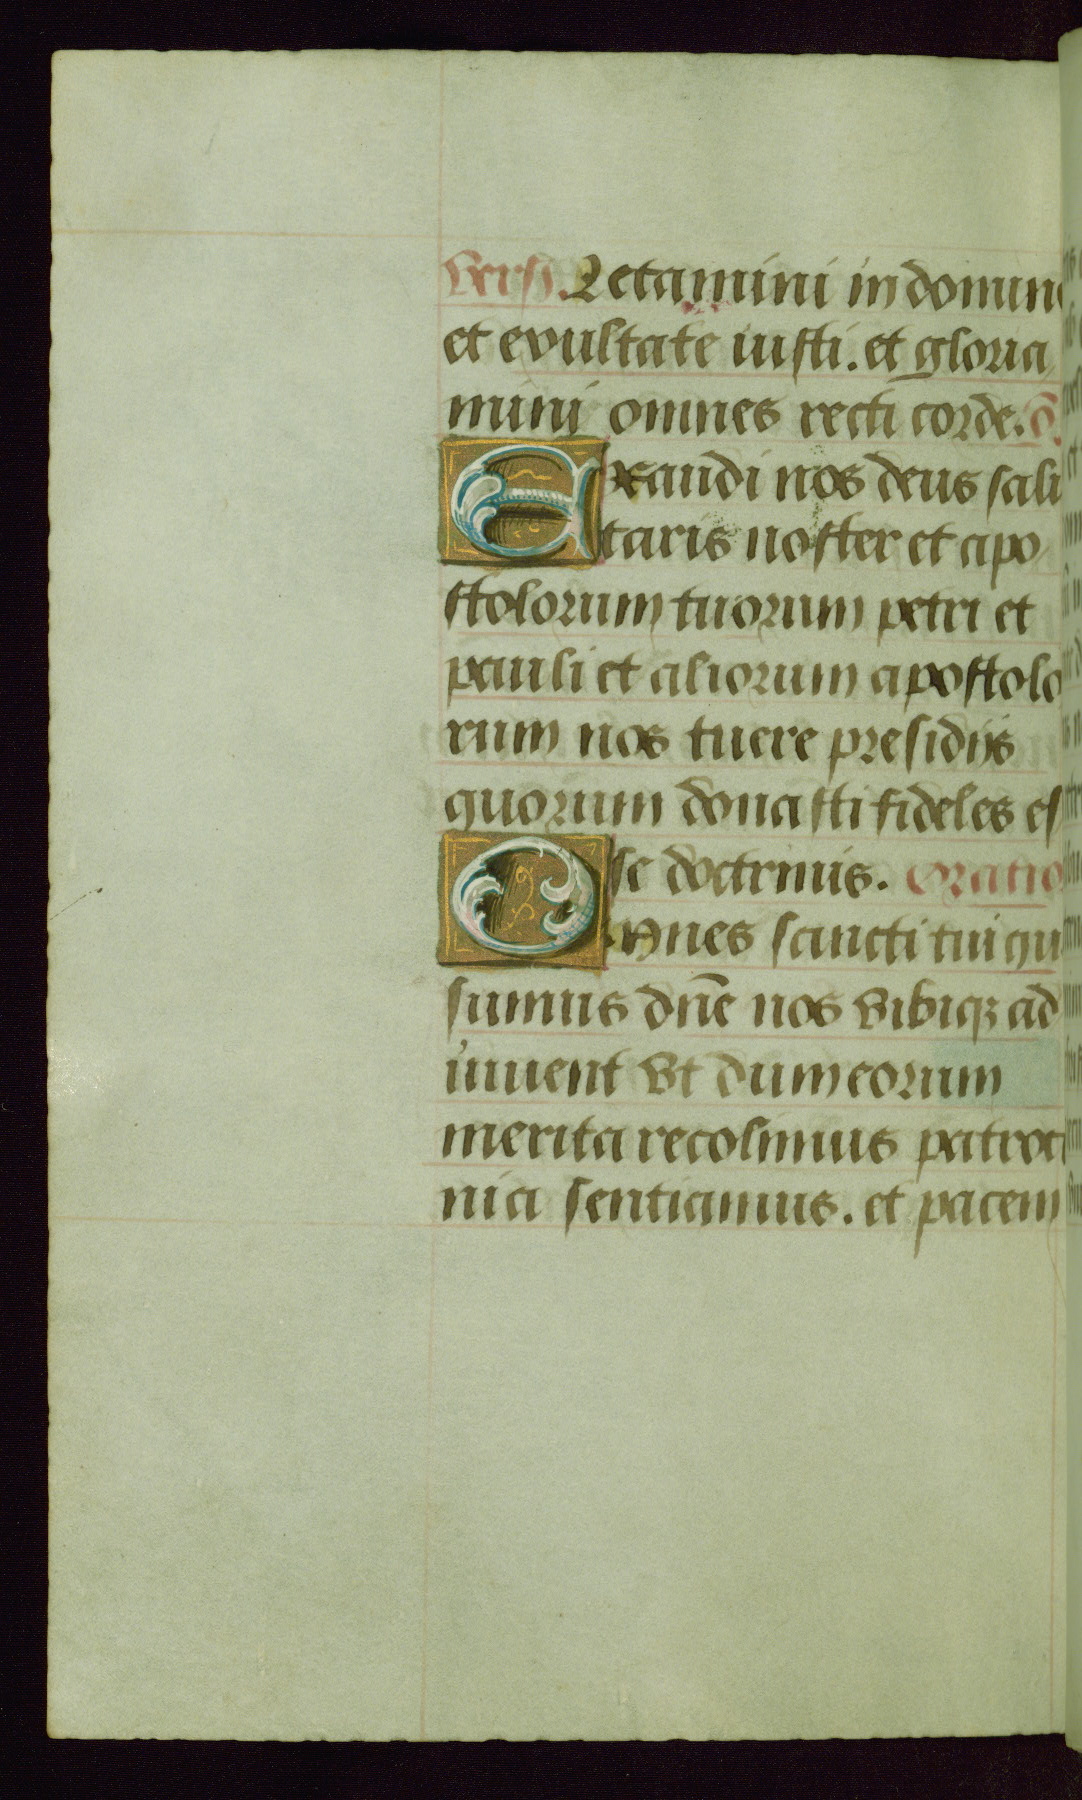 Vers. Letamini in domin
et exultate iusti. et gloria
mini omnes recti corde. Õ
Exaudi nos deus salu
taris noster et apo
stolorum tuorum petri et
pauli et aliorum apostolo
rum nos tuere presidijs
quorum donasti fideles es
se doctrinis. Oratio
Omnes sancti tui qu
sumus dñe nos vbiqꝫ ad
iuuent vt dum eorum
merita recolimus patroci
nia sentiamus. et pacem